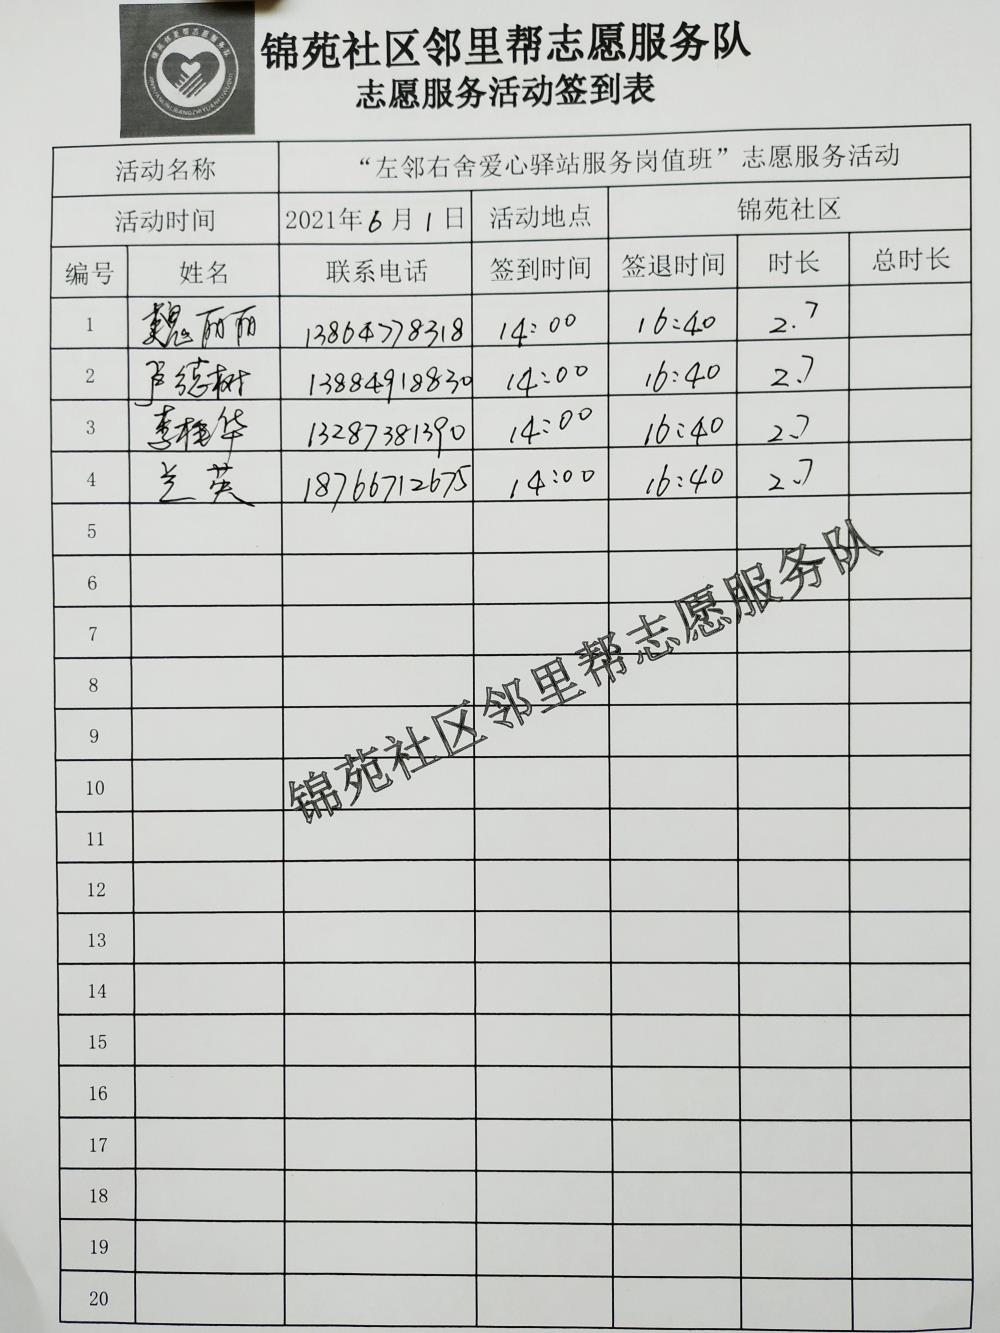 锦苑社区邻里帮志愿服务队
志愿服务活动签到表
活动名称 “左邻右舍爱心驿站服务岗值班”志愿服务活动
活动时间 2021年6月1日 活动地点 锦苑社区
编号 姓名 联系电话 签到时间 签退时间 时长 总时长
1 魏丽丽 13864778318 14:00 16:40 2.7
2 卢德树 13884918830 14:00 16:40 2.7
3 李桂华 13287381390 14:00 16:40 2.7
4 兰英 18766712675 14:00 16:40 2.7
5
6
7
8
9
10
11
12
13
14
15
16
17
18
19
20
锦苑社区邻里帮志愿服务队